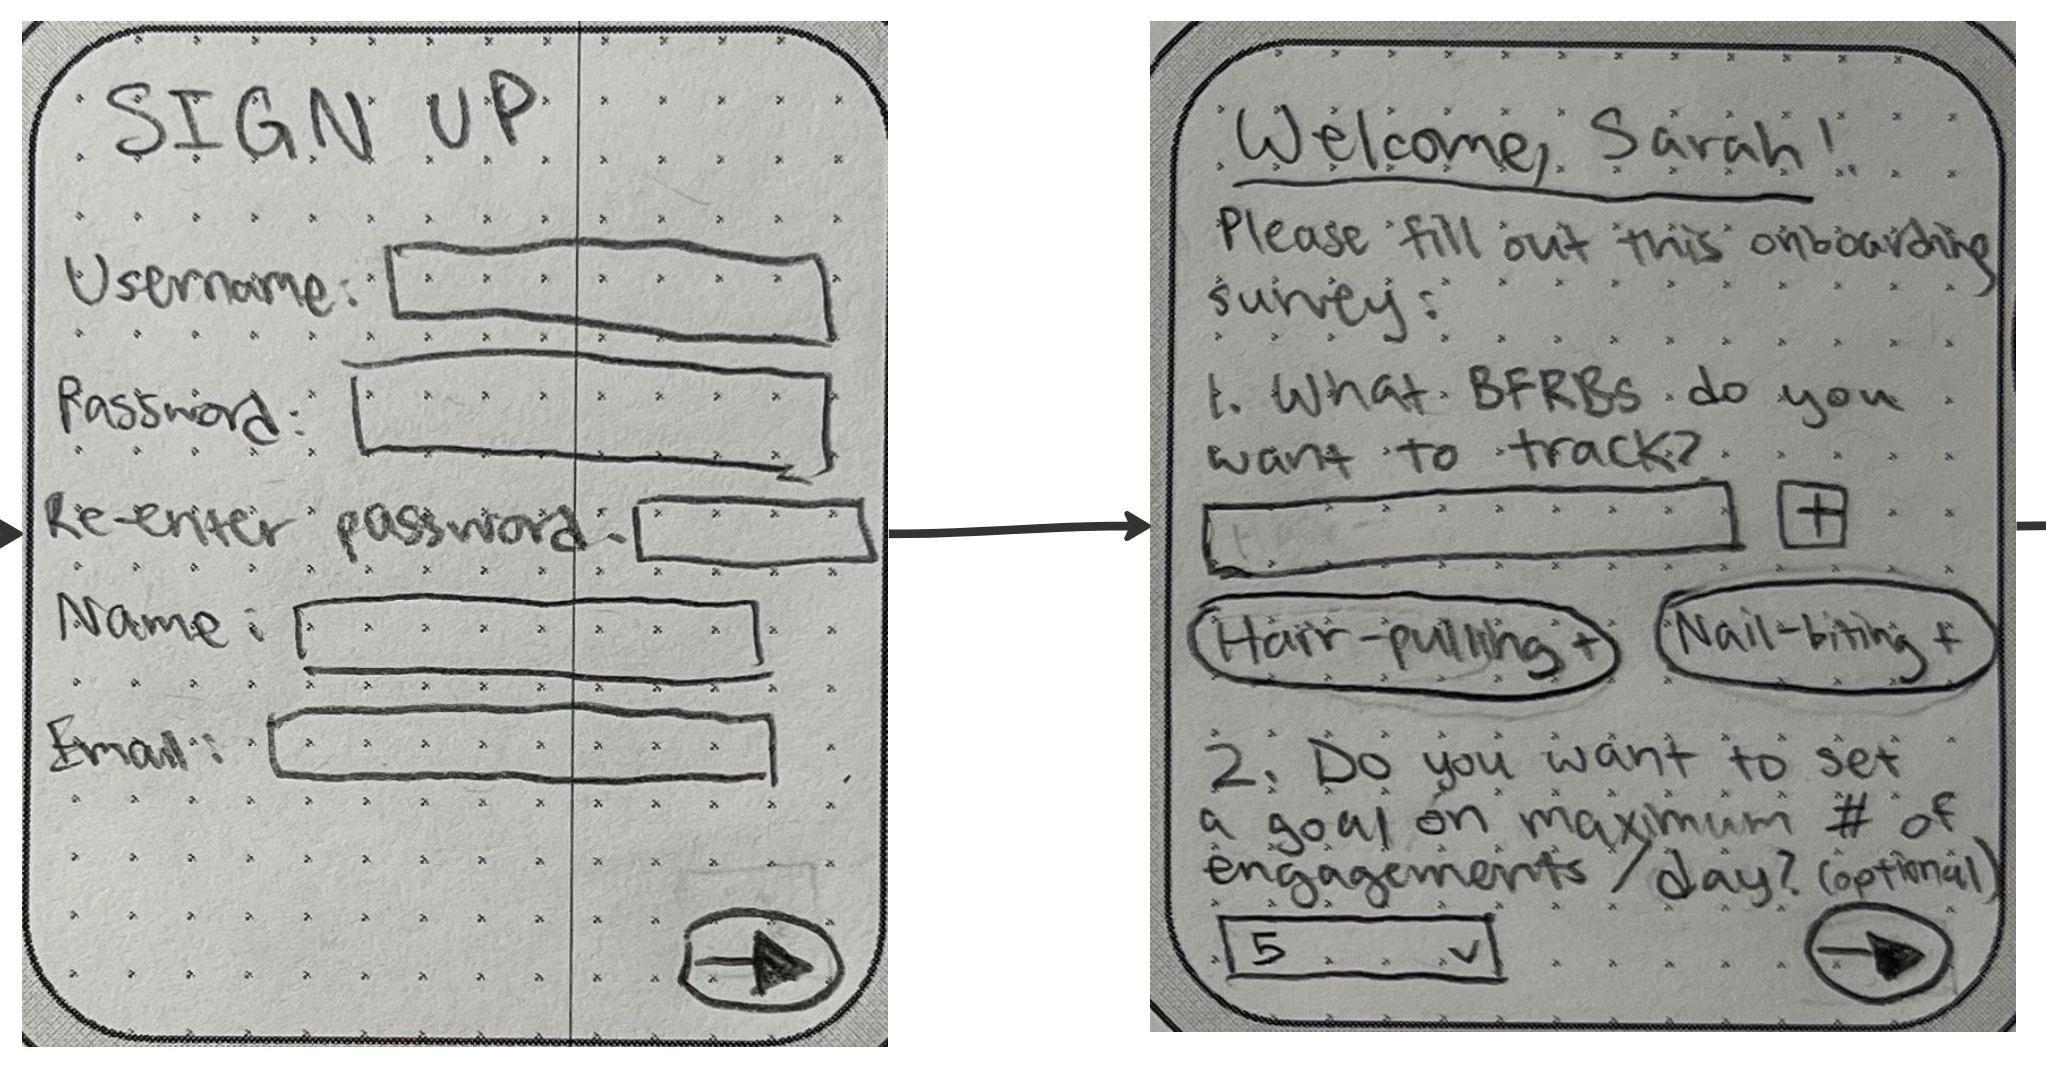 SIGN UP
Username:
Password:
Re-enter password:
Name:
Email:
Welcome, Sarah!
Please fill out this onboarding
survey:
1. What BFRBs do you
want to track?
+
Hair-pulling +
Nail-biting +
2. Do you want to set
a goal on maximum # of
engagements/day? (optional)
5